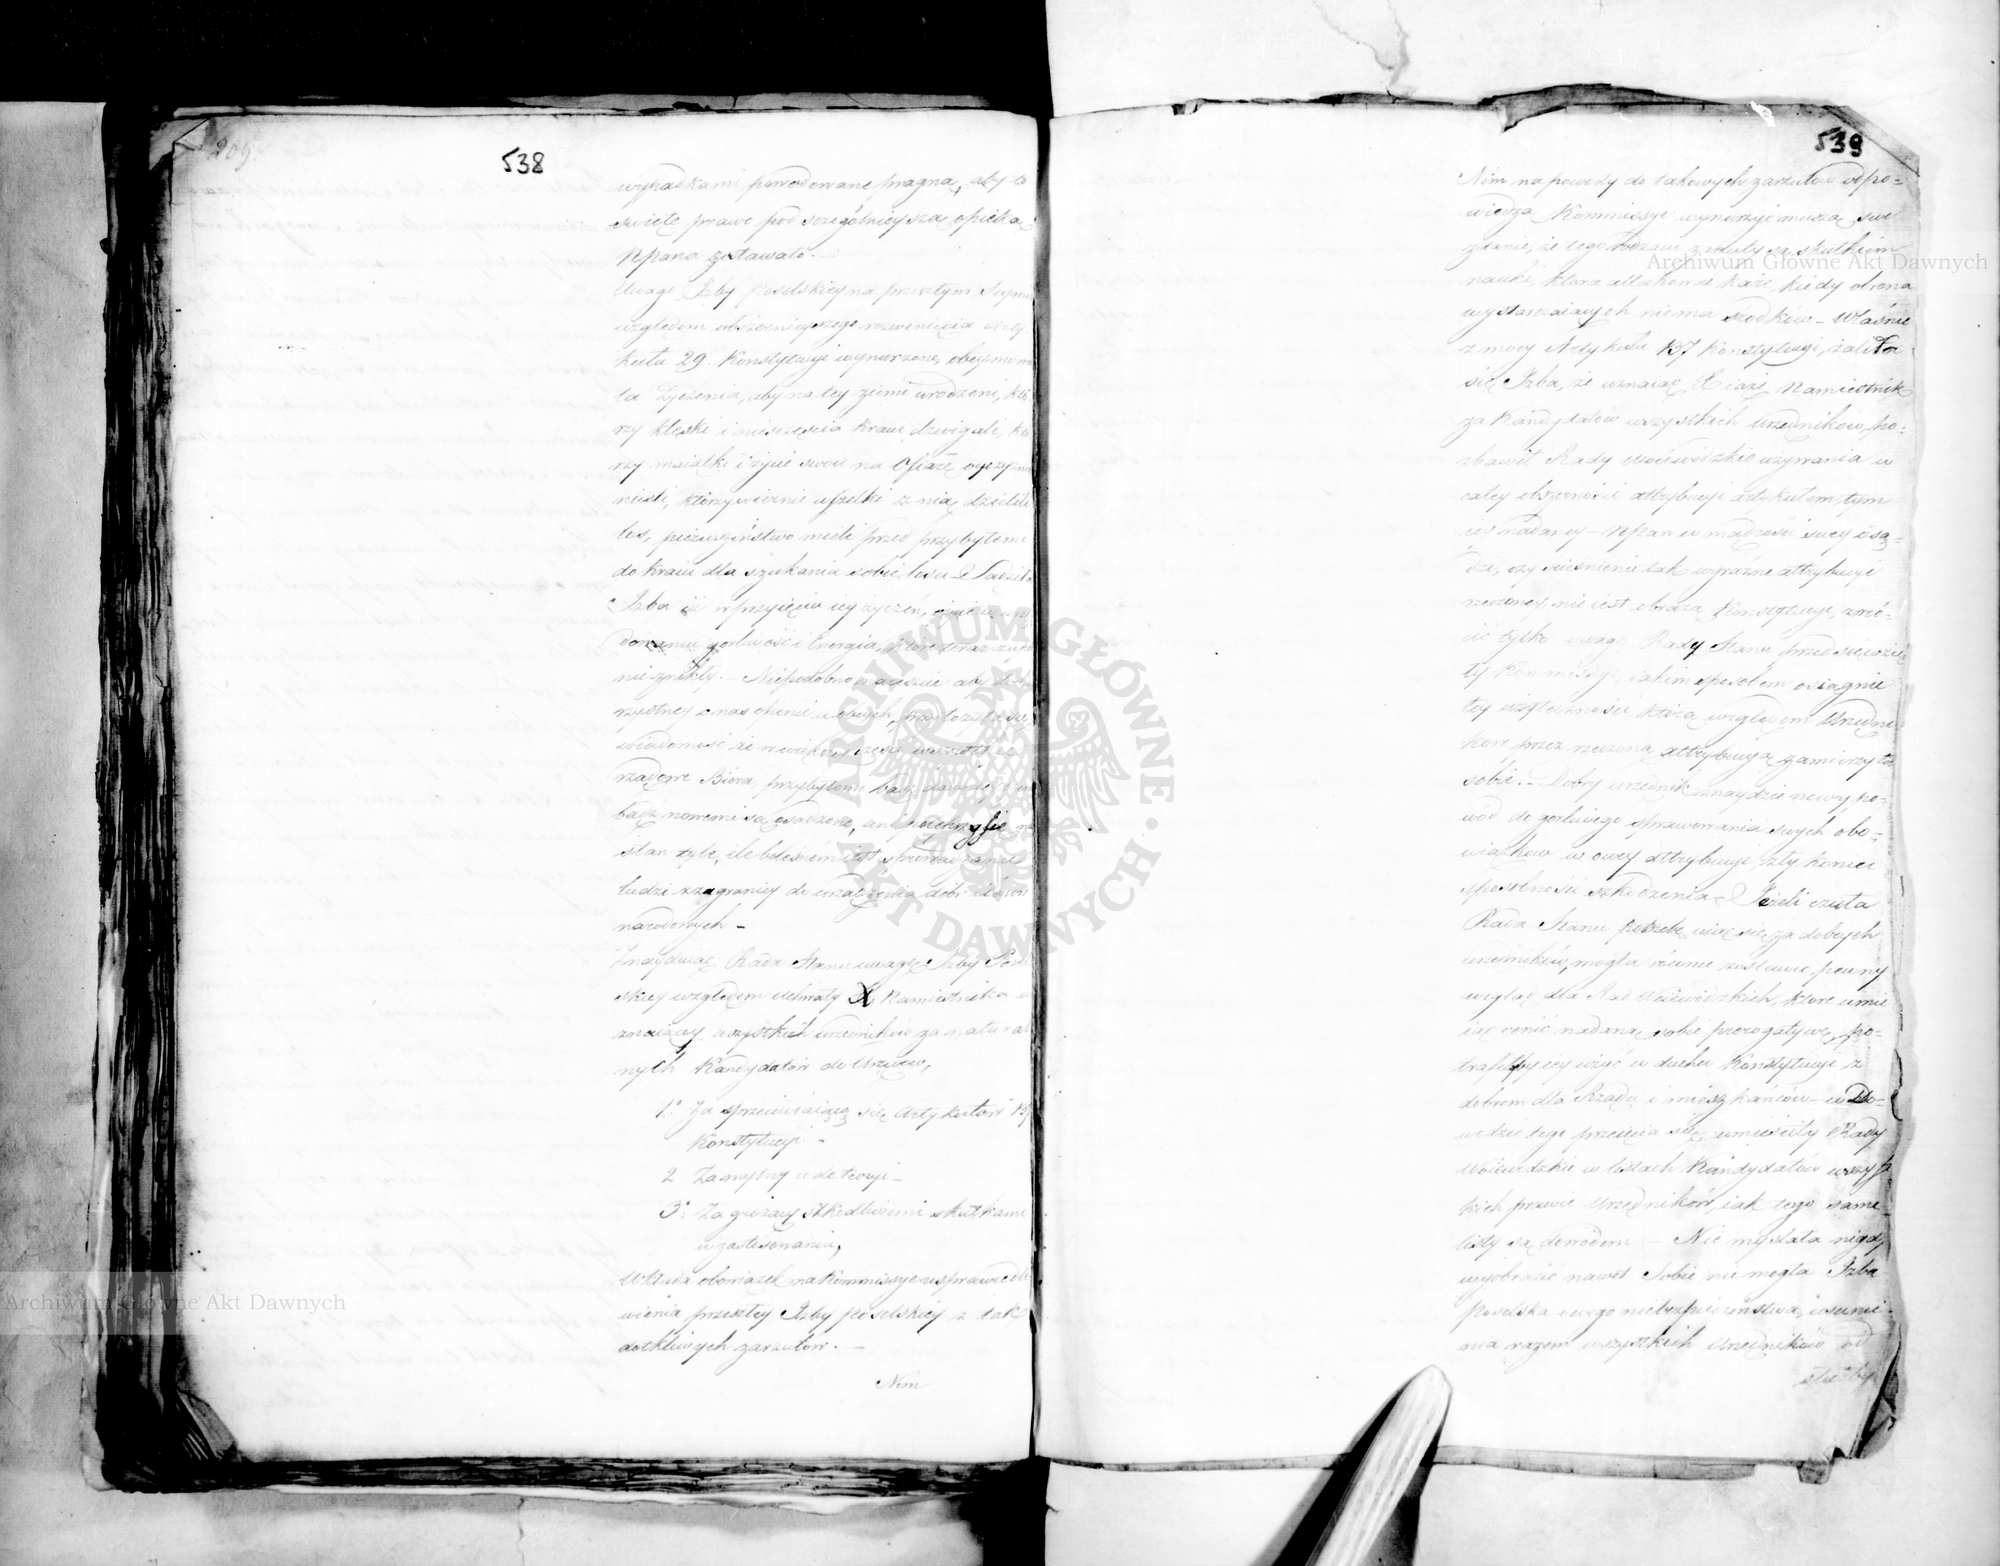 209.
538
wypadkami powodowane pragną, aby to
święte prawo pod szczególnieyszą opieką
NPana zostawało. —
Uwagi Izby Poselskiey na przeszłym Seymie
względem obszernieyszego rozwinięcia Arty
kułu 29. Konstytucyi wynurzone, obeymowa
ła życzenia, aby na tey ziemi urodzeni, któ
rzy klęski i nieszczęścia kraiu dźwigali, któ
rzy maiątki i życie swoie na Ofiarę oyczyznie
nieśli, którzy wiernie wszelki z nią dzielili
los, pierwszeństwo mieli przed przybyłemi
do kraiu dla szukania sobie losu — Sądziła
Izba iż w przyięciu iey życzeń,
gorliwość i Energia, które teraz
nie znikły. — Niepodobno nareszcie aby
z nas opinie
wiadomość że
rządowe Biora, przybyłemi bądź dawniey
bądź nowemi są osadzone,
stan tyle, ile bolesnem iest sprowadzanie
ludzi z zagranicy do urządzenia dóbr
narodowych —
Znayduiąc Rada Stanu uwagę Izby Posel
skiey względem Uchwały X. Namiestnika u
znaiącey wszystkich urzędników za natural
nych Kandydatów do Urzędów,
1° Za sprzeciwiaiącą się Artykułowi 137
Konstytucyi. —
2 Za mylny u de teoryi —
3° Za grożący szkodliwemi skutkami
w zastosowaniu,
Wkłada obowiązek na Kommissye usprawiedli
wienia przeszłey Izby Poselskiey z tak
dotkliwych zarzutów. —
Nim
539
Nim na powody do takowych zarzutów odpo=
wiedzą Kommissye wynurzyć muszą swe
zdanie, że tego rodzaiu zarzuty są skutkiem
nauki, która attakować każe, kiedy obrona
wystarczaiących niema środków — Właśnie
z mocy Artykułu 137 Konstytucyi, żaliła
się Izba, że uznaiąc Xiążę Namiestnik
za Kandydatów wszystkich Urzędników, po=
zbawił Rady Woiewódzkie używania w
całey obszerności attrybucyi Artykułem tym
iey nadaney — NPan w mądrości swey osą=
dzi, czy ścieśnienie tak wyraźne attrybucyi
rzeczoney, nie iest obrazą Konstytucyi, zwró=
cić tylko uwagę Rady Stanu przedsięwzię
ły Kommissye, iakim sposobem osiągnie
tey użyteczności którą względem Urzędni=
ków przez rzeczoną attrybucyą zamierzyła
sobie. — Dobry urzędnik znaydzie nowy po=
wód do gorliwego sprawowania swych obo=
wiązków w owey attrybucyi, zły koniec
sposobności szkodzenia. — Jeżeli czuła
Rada Stanu potrzebę uiąć się za dobrych
urzędników, mogła równie zostawić pewny
wzgląd dla Rad Woiewódzkich, które umie
iąc cenić nadaną sobie prerogatywę, po=
trafiłyby iey użyć w duchu Konstytucyi z
dobrem dla Rządu i mieszkańców — w Do=
wodzie tego przecięcia się, umieściły Rady
Woiewódzkie w listach Kandydatów wszyst
kich prawie Urzędników, iak tego same
listy są dowodem — Nie myślała nigdy,
wyobrazić nawet sobie nie mogła Izba
Poselska owego niebezpieczeństwa, usunie=
nia razem wszystkich Urzędników od
służby
Archiwum Główne Akt Dawnych
Archiwum Główne Akt Dawnych
ARCHIWUM GŁÓWNE AKT DAWNYCH